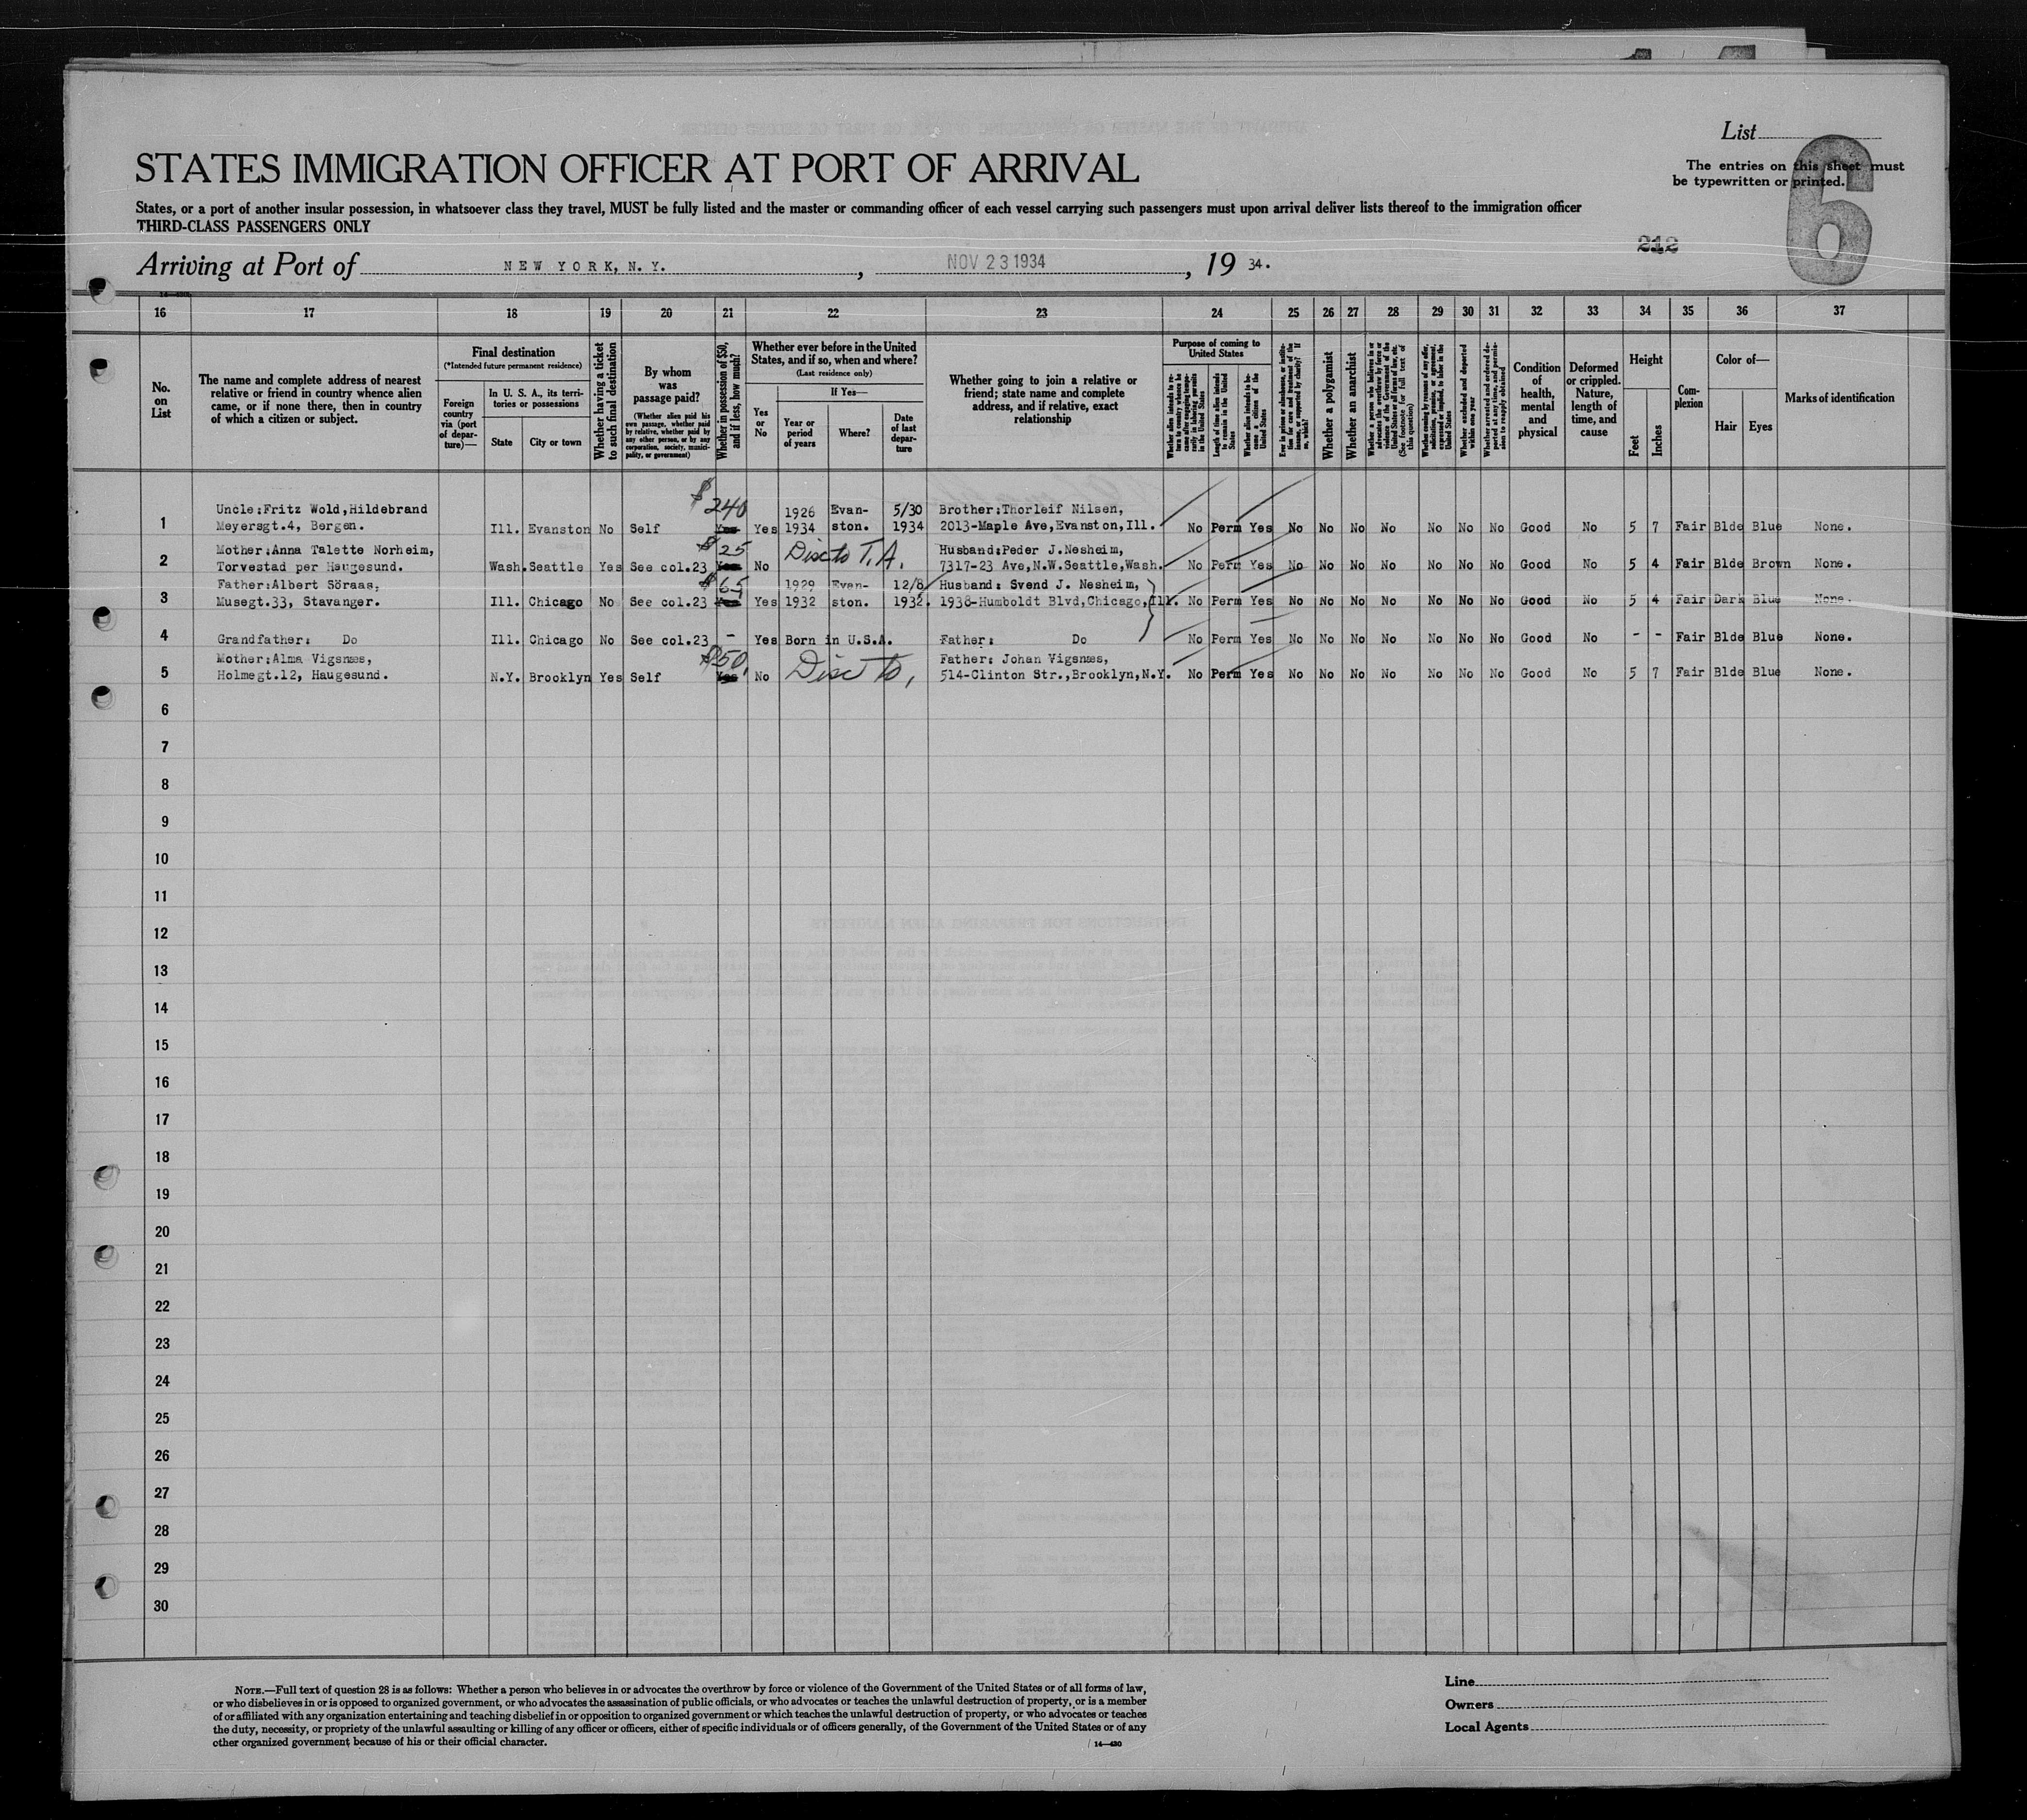 List
6
The entries on this sheet must
be typewritten or printed.
STATES IMMIGRATION OFFICER AT PORT OF ARRIVAL
States, or a port of another insular possession, in whatsoever class they travel, MUST be fully listed and the master or commanding officer of each vessel carrying such passengers must upon arrival deliver lists thereof to the immigration officer
THIRD-CLASS PASSENGERS ONLY
212
Arriving at Port of NEW YORK, N. Y., NOV 23 1934, 19 34.
16 17 18 19 20 21 22 23 24 25 26 27 28 29 30 31 32 33 34 35 36 37
No. on List
The name and complete address of nearest relative or friend in country whence alien came, or if none there, then in country of which a citizen or subject.
Final destination
(*Intended future permanent residence)
Foreign country via (port of departure)—
In U. S. A., its territories or possessions
State
City or town
Whether having a ticket to such final destination
By whom was passage paid?
(Whether alien paid his own passage, whether paid by relative, whether paid by any other person, or by any corporation, society, municipality, or government)
Whether in possession of $50, and if less, how much?
Whether ever before in the United States, and if so, when and where?
(Last residence only)
Yes or No
If Yes—
Year or period of years
Where?
Date of last departure
Whether going to join a relative or friend; state name and complete address, and if relative, exact relationship
Purpose of coming to United States
Length of time alien intends to remain in the United States
Whether alien intends to become a citizen of the United States
Whether a polygamist
Whether an anarchist
Condition of health, mental and physical
Deformed or crippled. Nature, length of time, and cause
Height
Feet
Inches
Complexion
Color of—
Hair
Eyes
Marks of identification
$240
Uncle:Fritz Wold,Hildebrand 1926 Evan- 5/30 Brother:Thorleif Nilsen,
1 Meyersgt.4, Bergen. Ill. Evanston No Self Yes Yes 1934 ston. 1934 2013-Maple Ave,Evanston,Ill. No Perm Yes No No No No No No No Good No 5 7 Fair Blde Blue None.
Mother:Anna Talette Norheim, $25 Disc to T.A. Husband:Peder J.Nesheim,
2 Torvestad per Haugesund. Wash. Seattle Yes See col.23 Yes No 7317-23 Ave,N.W.Seattle,Wash. No Perm Yes No No No No No No No Good No 5 4 Fair Blde Brown None.
Father:Albert Söraas, $65 1929 Evan- 12/8 Husband: Svend J. Nesheim,
3 Musegt.33, Stavanger. Ill. Chicago No See col.23 Yes Yes 1932 ston. 1932. 1938-Humboldt Blvd,Chicago,Ill. No Perm Yes No No No No No No No Good No 5 4 Fair Dark Blue None.
4 Grandfather: Do Ill. Chicago No See col.23 - Yes Born in U.S.A. Father: Do No Perm Yes No No No No No No No Good No - - Fair Blde Blue None.
Mother:Alma Vigsnæs, $50, Disc to, Father: Johan Vigsnæs,
5 Holmegt.12, Haugesund. N.Y. Brooklyn Yes Self Yes No 514-Clinton Str.,Brooklyn,N.Y. No Perm Yes No No No No No No No Good No 5 7 Fair Blde Blue None.
6
7
8
9
10
11
12
13
14
15
16
17
18
19
20
21
22
23
24
25
26
27
28
29
30
NOTE.—Full text of question 28 is as follows: Whether a person who believes in or advocates the overthrow by force or violence of the Government of the United States or of all forms of law,
or who disbelieves in or is opposed to organized government, or who advocates the assassination of public officials, or who advocates or teaches the unlawful destruction of property, or is a member
of or affiliated with any organization entertaining and teaching disbelief in or opposition to organized government or which teaches the unlawful destruction of property, or who advocates or teaches
the duty, necessity, or propriety of the unlawful assaulting or killing of any officer or officers, either of specific individuals or of officers generally, of the Government of the United States or of any
other organized government because of his or their official character.
14—430
Line
Owners
Local Agents